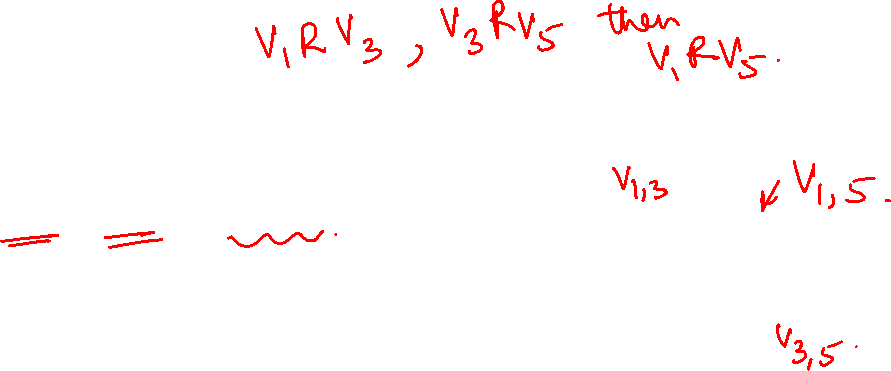 V₁RV₃, V₃RV₅ then
V₁RV₅.
V₁,₃ V₁,₅.
V₃,₅.